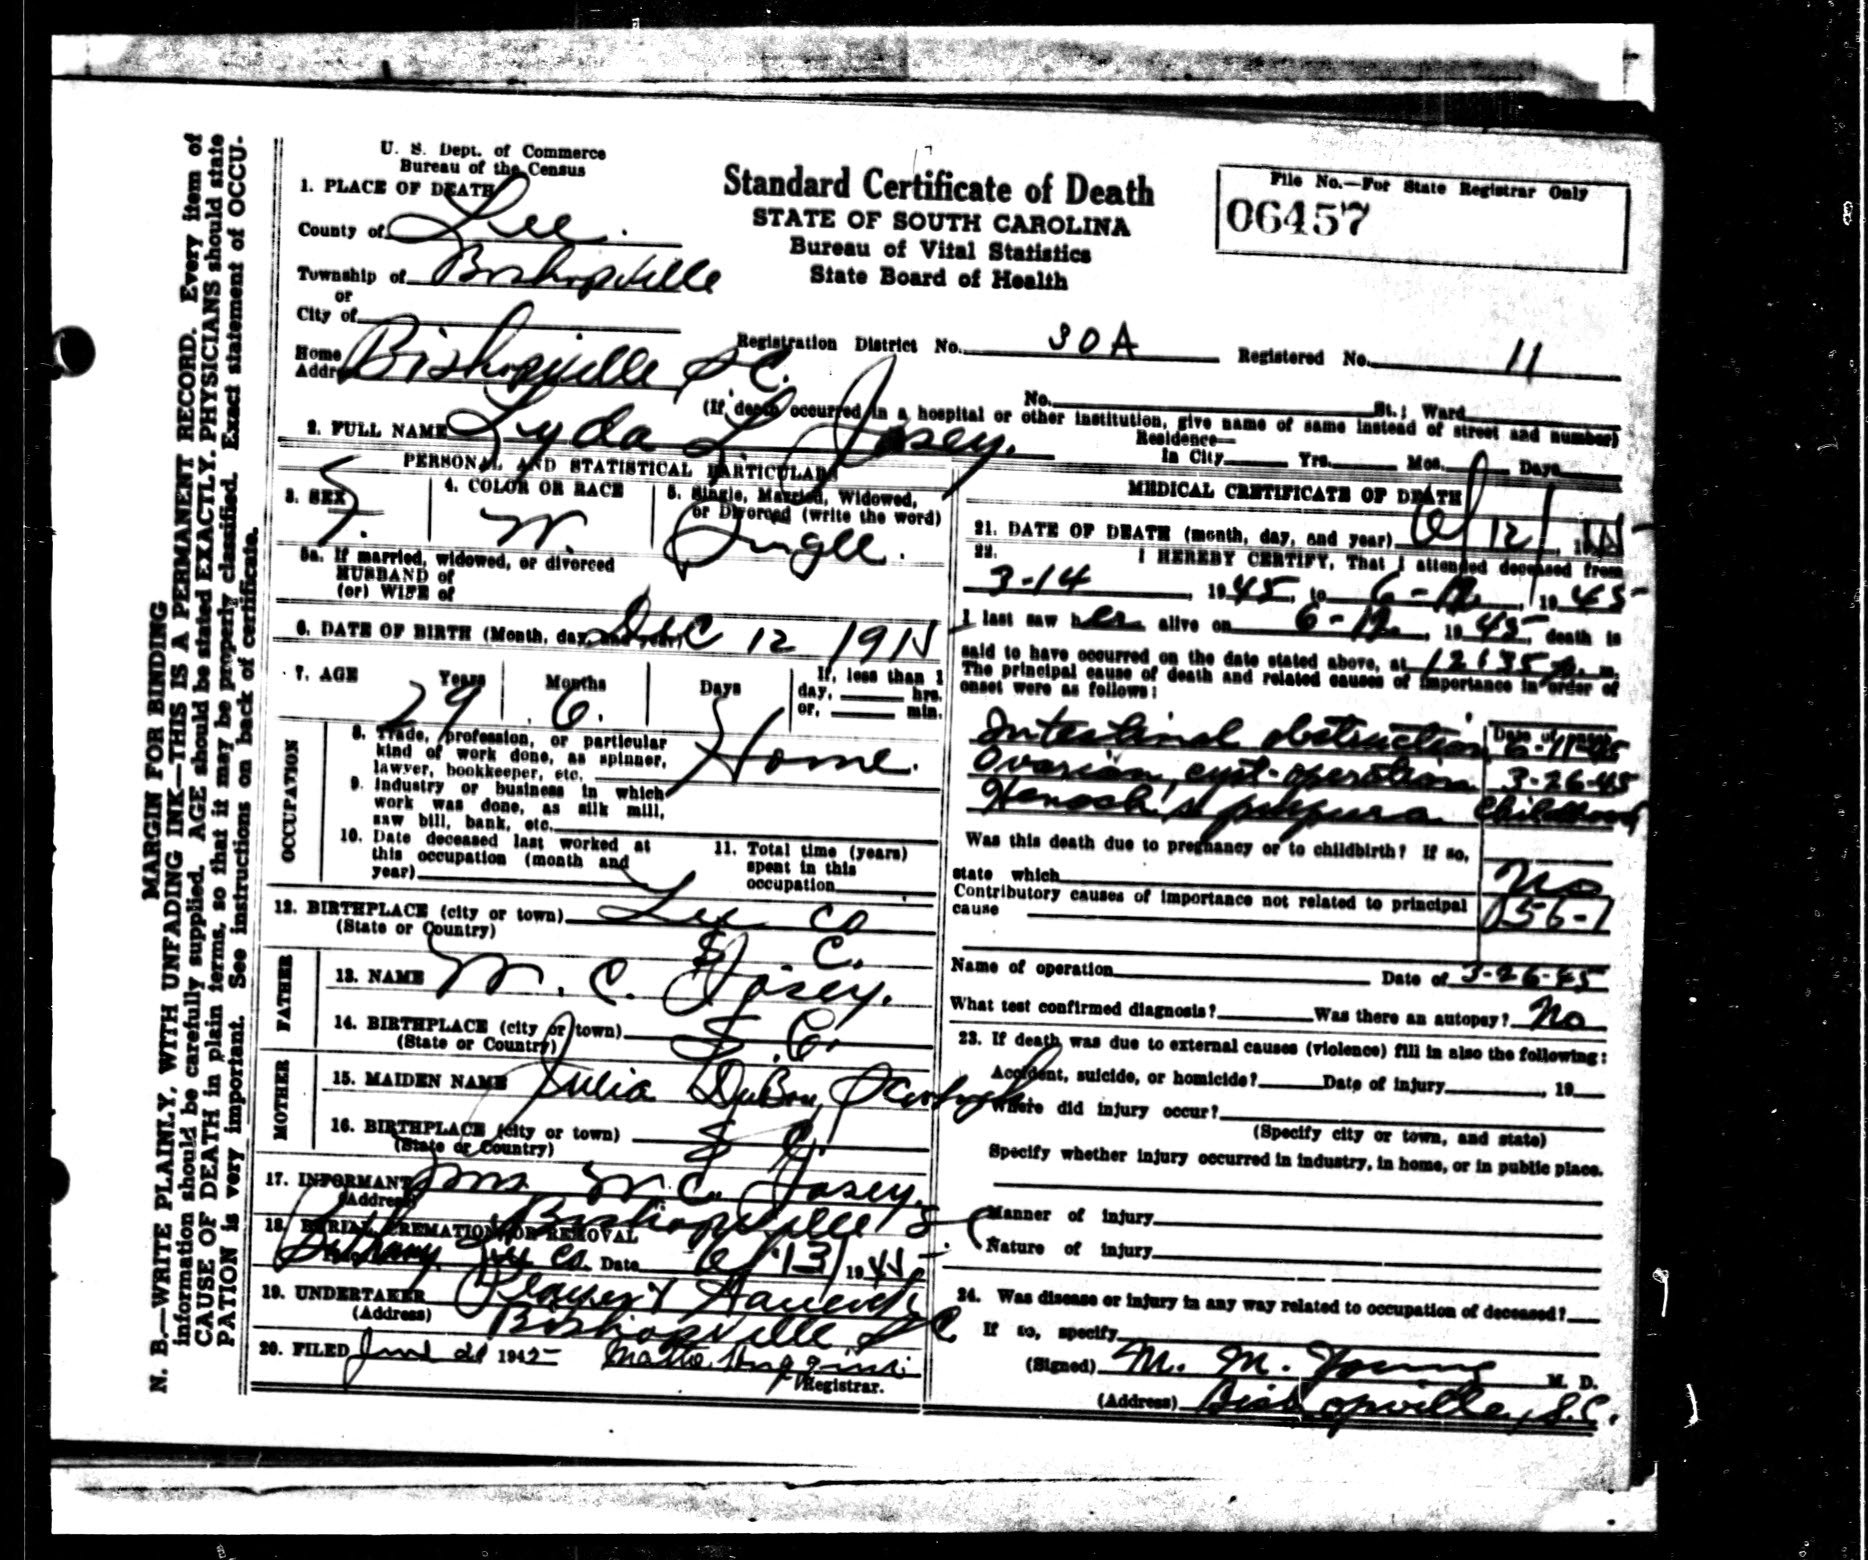 N. B.—WRITE PLAINLY, WITH UNFADING INK—THIS IS A PERMANENT RECORD. Every item of
information should be carefully supplied. AGE should be stated EXACTLY. PHYSICIANS should state
CAUSE OF DEATH in plain terms, so that it may be properly classified. Exact statement of OCCU-
PATION is very important. See instructions on back of certificate.
MARGIN FOR BINDING
U. S. Dept. of Commerce
Bureau of the Census
Standard Certificate of Death
STATE OF SOUTH CAROLINA
Bureau of Vital Statistics
State Board of Health
File No.—For State Registrar Only
06457
1. PLACE OF DEATH
County of Lee.
Township of Bishopville
or
City of
Registration District No. 30A Registered No. 11
Home Address Bishopville S C.
No. St.; Ward
(If death occurred in a hospital or other institution, give name of same instead of street and number)
2. FULL NAME Lyda L Josey.
Residence—
In City Yrs. Mos. Days
PERSONAL AND STATISTICAL PARTICULARS
3. SEX F.
4. COLOR OR RACE W.
5. Single, Married, Widowed, or Divorced (write the word) Single.
5a. If married, widowed, or divorced
HUSBAND of
(or) WIFE of
6. DATE OF BIRTH (Month, day, and year) Dec 12 1915
7. AGE Years 29 Months 6. Days
If, less than 1
day, hrs.
or, min.
OCCUPATION
8. Trade, profession, or particular
kind of work done, as spinner,
lawyer, bookkeeper, etc. Home.
9. Industry or business in which
work was done, as silk mill,
saw bill, bank, etc.
10. Date deceased last worked at
this occupation (month and
year)
11. Total time (years)
spent in this
occupation
12. BIRTHPLACE (city or town) Lee Co
(State or Country) S C.
FATHER
13. NAME M. C. Josey.
14. BIRTHPLACE (city or town) S. C.
(State or Country)
MOTHER
15. MAIDEN NAME Julia DuBose
16. BIRTHPLACE (city or town) S C.
(State or Country)
17. INFORMANT Mrs. M C. Josey.
(Address) Bishopville S C
18. BURIAL, CREMATION, OR REMOVAL
Bethany Lee Co. Date 6/13/1945
19. UNDERTAKER
(Address) Bishopville S C
20. FILED 1945
Registrar.
MEDICAL CERTIFICATE OF DEATH
21. DATE OF DEATH (month, day, and year) 6/12/, 1945
22. I HEREBY CERTIFY, That I attended deceased from
3-14, 1945, to 6-12, 1945
I last saw her alive on 6-12, 1945, death is
said to have occurred on the date stated above, at 12:35 p. m.
The principal cause of death and related causes of importance in order of
onset were as follows:
Date of onset
Intestinal obstruction 6-11-45
Ovarian cyst-operation 3-26-45
Henoch's purpura Childhood
Was this death due to pregnancy or to childbirth? If so,
state which No
Contributory causes of importance not related to principal
cause
56-1
Name of operation Date of 3-26-45
What test confirmed diagnosis? Was there an autopsy? No
23. If death was due to external causes (violence) fill in also the following:
Accident, suicide, or homicide? Date of injury, 19
Where did injury occur?
(Specify city or town, and state)
Specify whether injury occurred in industry, in home, or in public place.
Manner of injury
Nature of injury
24. Was disease or injury in any way related to occupation of deceased?
If so, specify
(Signed) M. M. Young M. D.
(Address) Bishopville, S.C.